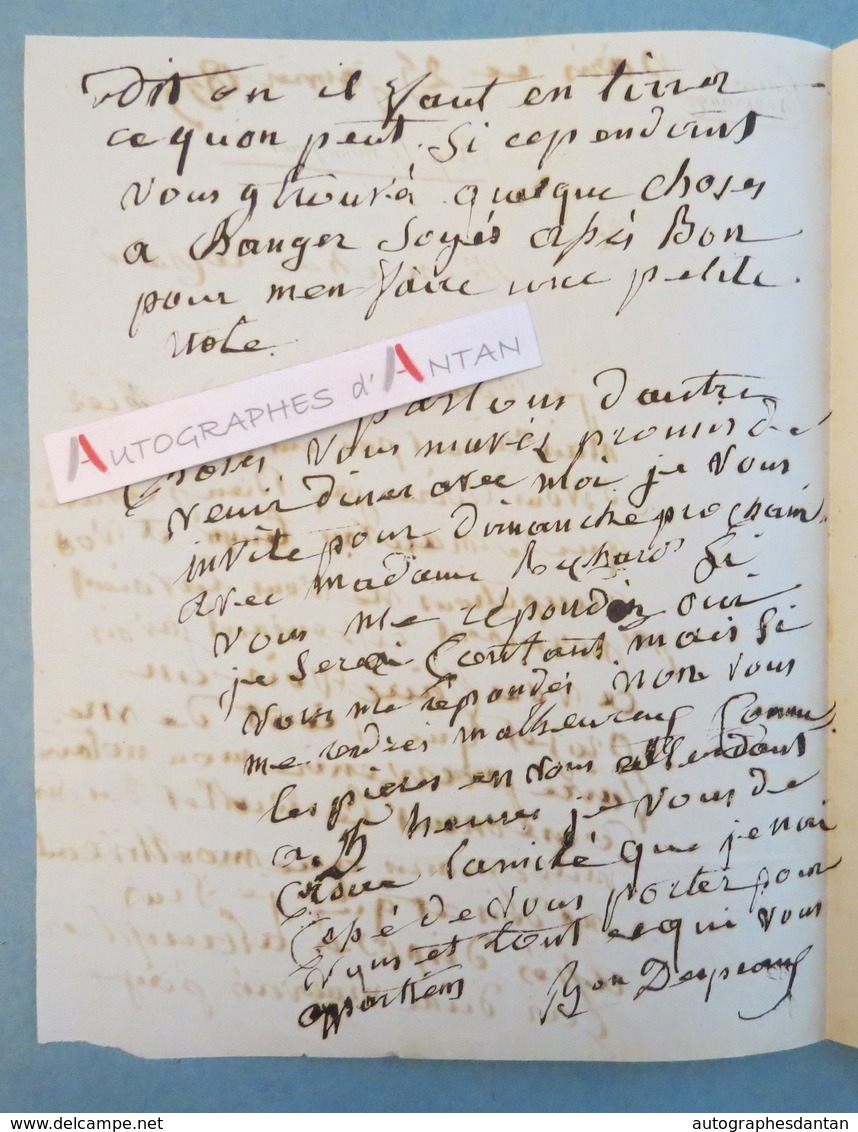 dit on il faut en tirrer
ce quon peut. Si cependant
vous y trouvá quelque choses
a Changer Soyés assés Bon
pour men faire une petite
note.
AUTOGRAPHES d'ANTAN
parlons dautre
Choses, vous mavés promis de
venir diner avec moi je vous
invite pour dimanche prochain
avec madame Si
vous me répondéz oui
je serai Contant mais si
vous me répondés non vous
me rendrés malheureux Comme
les pieres en vous attendant
a 5 heures je vous de
Croire lamitié que je nai
Cessé de vous porter pour
vous et tout ce qui vous
appartiens Bon Despeaux
www.delcampe.net
autographesdantan